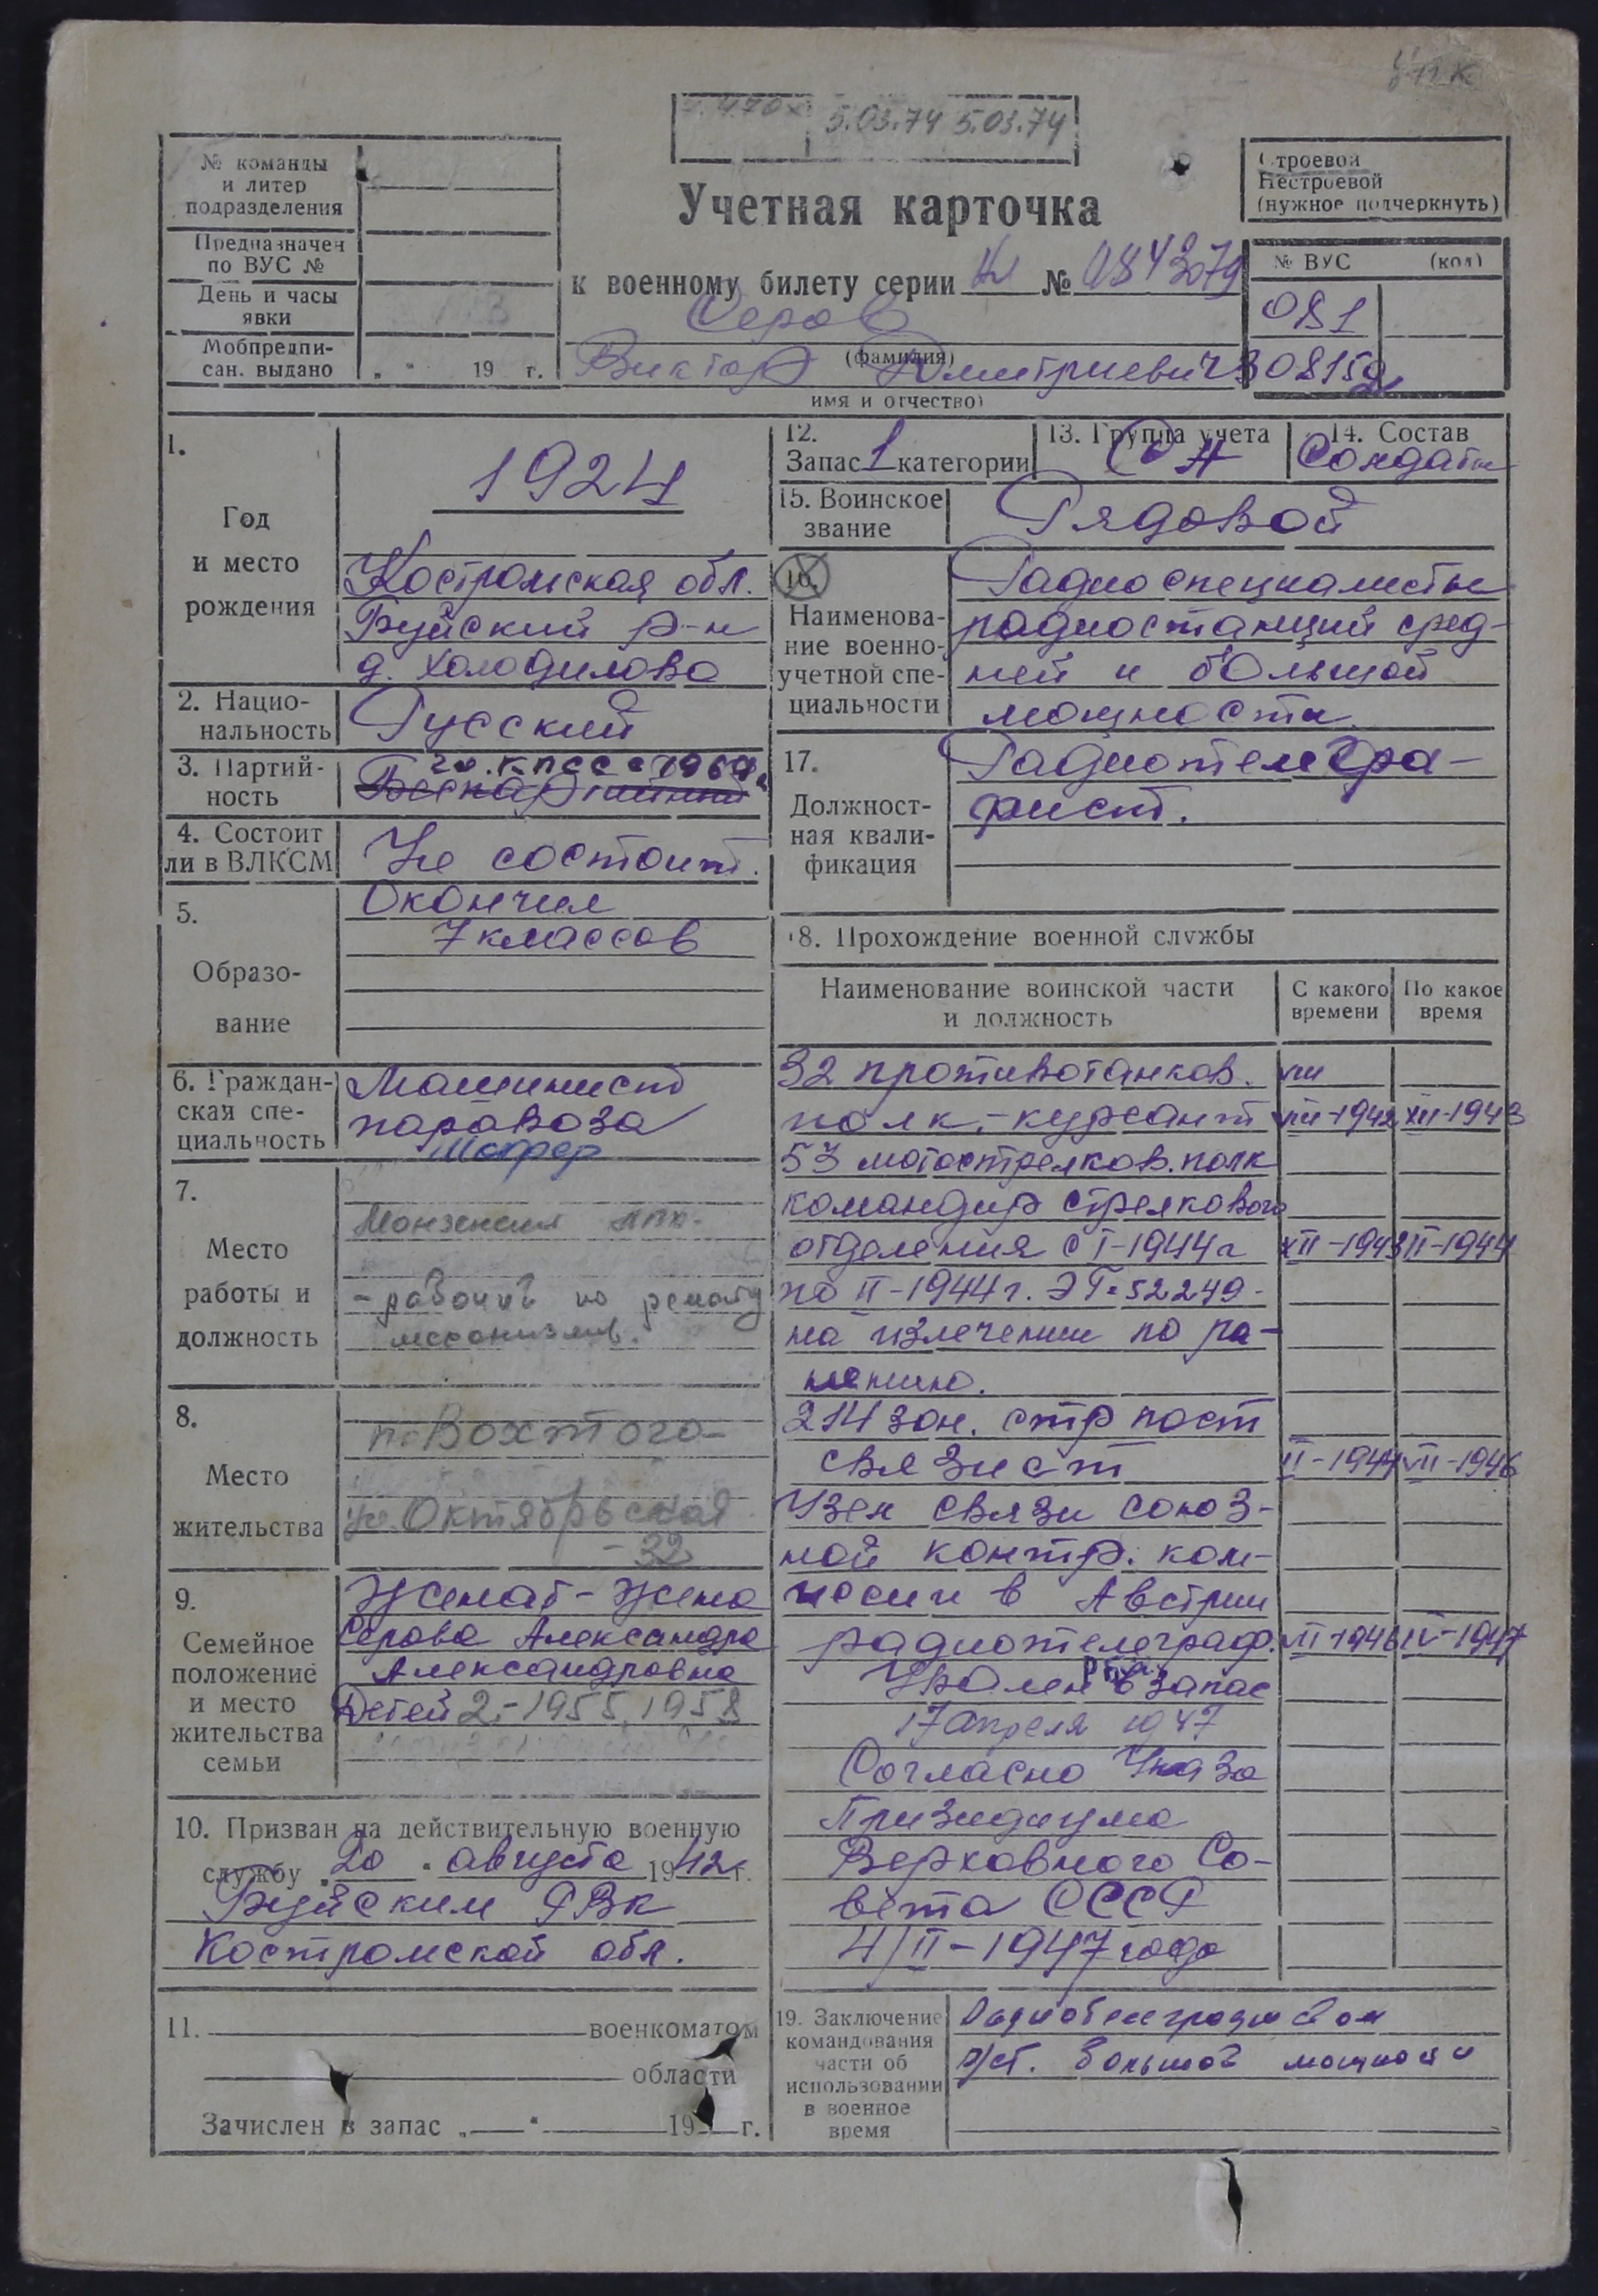 5.03.74 5.03.74
№ команды
и литер
подразделения
Предназначен
по ВУС №
День и часы
явки
Мобпредпи-
сан. выдано „ " 19 г.
Учетная карточка
к военному билету серии № 0843079
Серов
(фамилия)
Виктор Дмитриевич
имя и отчество)
Строевой
Нестроевой
(нужное подчеркнуть)
№ ВУС (код)
081
1.
Год
и место
рождения
1924
Костромская обл.
Буйский р-н
д. Холодилово
2. Нацио-
нальность
Русский
3. Партий-
ность
чл. КПСС с 1964
Беспартийный
4. Состоит
ли в ВЛКСМ
Не состоит.
5.
Образо-
вание
Окончил
7 классов
6. Граждан-
ская спе-
циальность
Машинист
паровоза
Шофер
7.
Место
работы и
должность
Монзенская
- рабочий по ремонту
механизмов.
8.
Место
жительства
п. Вохтога
ул. Октябрьская
- 32
9.
Семейное
положение
и место
жительства
семьи
Женат - жена
Серова Александра
Александровна
Детей 2 - 1955, 1958
10. Призван на действительную военную
службу „20" августа 1942 г.
Буйским РВК
Костромской обл.
11. военкоматом
области
Зачислен в запас „ " 19 г.
12.
Запас 1 категории
13. Группа учета
СА
14. Состав
Солдаты
15. Воинское
звание
Рядовой
16.
Наименова-
ние военно-
учетной спе-
циальности
Радиоспециалисты
радиостанций сред-
ней и большой
мощности
17.
Должност-
ная квали-
фикация
Радиотелегра-
фист.
18. Прохождение военной службы
Наименование воинской части
и должность
С какого
времени
По какое
время
32 противотанков. VIII
полк. - курсант VIII-1942 XII-1943
53 мотострелков. полк
командир стрелкового
отделения с I-1944 г XII-1943 II-1944
по II-1944 г. ЭГ-52249 -
на излечении по ра-
нению.
214 зен. стр
связист II-1944 VII-1946
Узел связи союз-
ной контр. ком-
иссии в Австрии
радиотелеграф. VII-1946 IV-1947
Уволен в запас
17 апреля 1947
Согласно Указа
Призидиума
Верховного Со-
вета СССР
4/II-1947 года
19. Заключение
командования
части об
использовании
в военное
время
р/ст. большой мощности